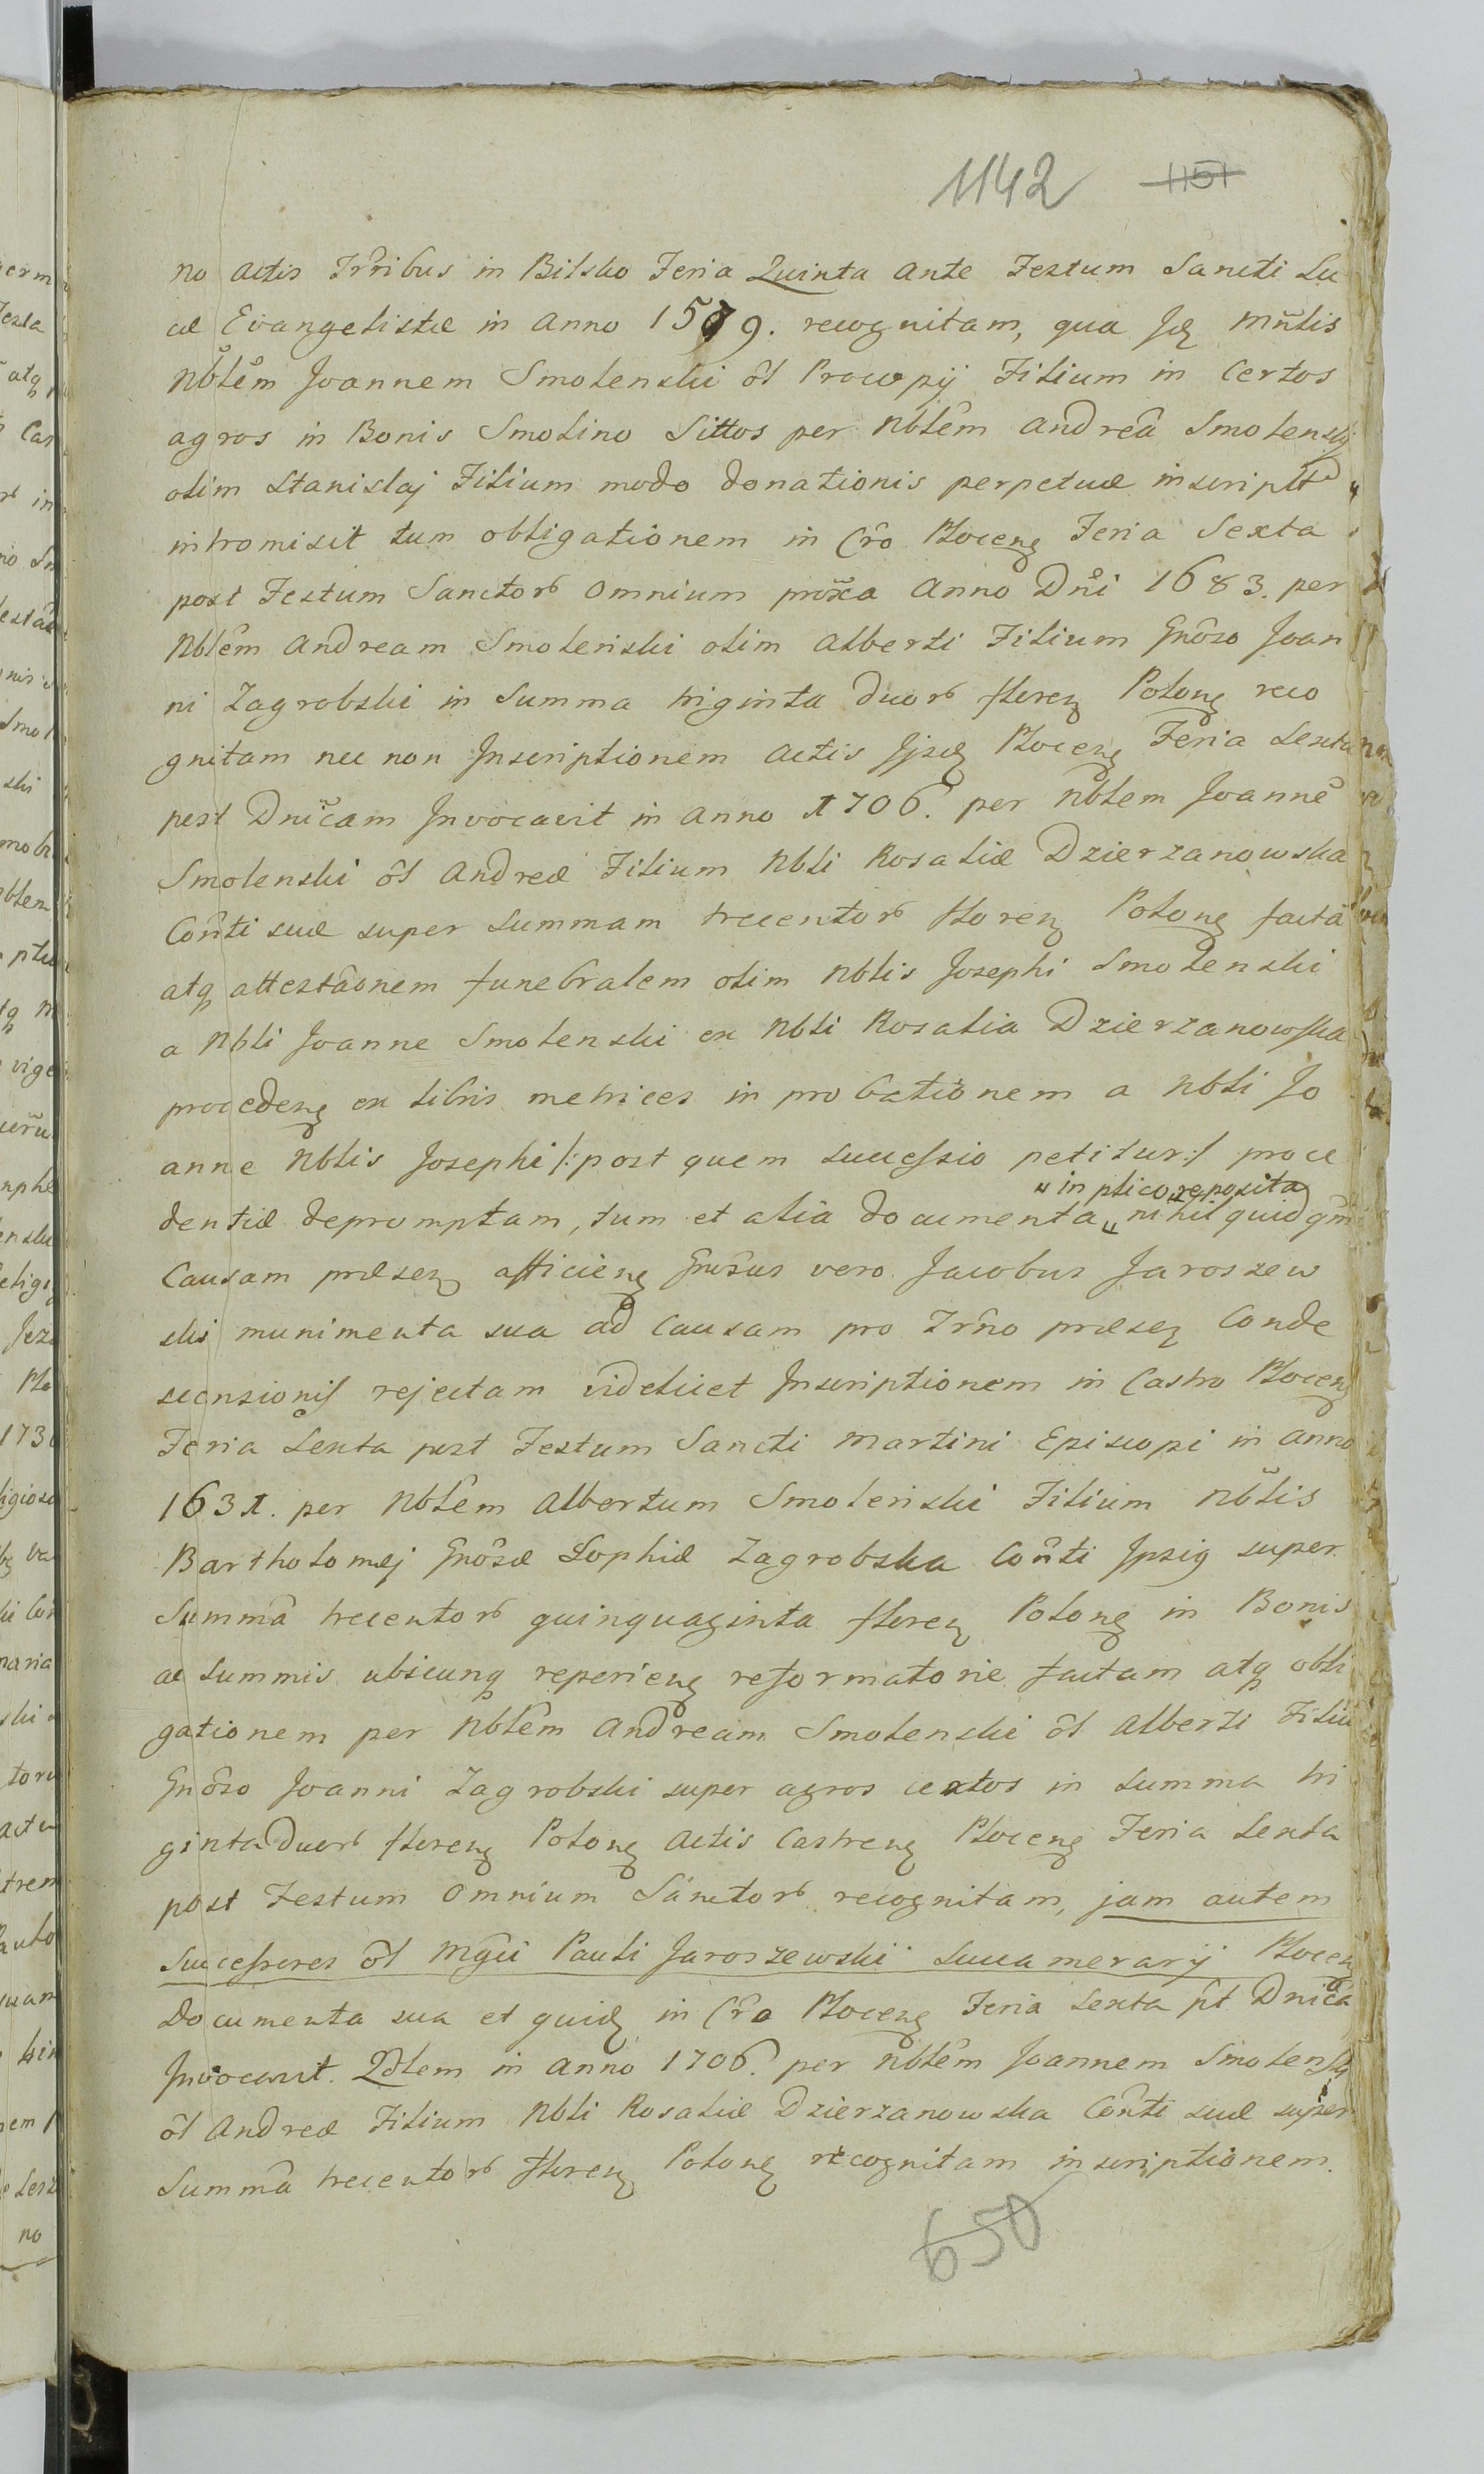 1142 1151
no actis Trribus in Bilsko Feria Quinta ante Festum Sancti Lu
cæ Evangelistæ in Anno 1579. recognitam, qua Jdz Mnlis
Nblem Joannem Smolenski ol Procopij Filium in certos
agros in Bonis Smolino Sittos per Nblem Andreā Smolenski
olim Stanislaj Filium modo donationis perpetuæ inscriptt
intromisit tum obligationem in Cro Plocenz Feria Sexta
post Festum Sanctorb omnium proxa Anno Dni 1683. per
Nblem Andream Smolenski olim Alberti Filium Gnoso Joan
ni Zagrobski in Summa triginta duorb florenz Polonz reco
gnitam nec non Inscriptionem actis Ijsdz Plocenz Feria Sexta
post Dnicam Invocavit in anno 1706. per Nblem Joannē
Smolenski ol Andreæ Filium Nbli Rosaliæ Dzierzanowska
Conti suæ super summam trecentorb florenz Polonz factā
atq attestāonem funebralem olim Nblis Josephi Smolenski
a Nbli Joanne Smolenski ex Nbli Rosalia Dzierzanowska
procedenz ex libris metrices in probationem a Nbli Jo
anne Nblis Josephi /:post quem successio petitur:/ proce
dentiæ depromptam, tum et alia documenta " nihil quidqm
" in plico reposita
Causam præsenz afficienz Gnosus vero Jacobus Jaroszew
ski munimenta sua ad causam pro Trno præsenz Conde
scensionis rejectam videlicet Inscriptionem in Castro Plocenz
Feria Sexta post Festum Sancti Martini Episcopi in anno
1631. per Nblem Albertum Smolenski Filium Nblis
Bartholomæj Gnosæ Sophiæ Zagrobska Conti Ipsig super
Summā trecentorb quinquaginta florenz Polonz in Bonis
ac Summis ubicunq reperienz reformatorie factam atq obli
gationem per Nblem Andream Smolenski ol Alberti Filiū
Gnoso Joanni Zagrobski super agros certos in Summa tri
ginta duorb florenz Polonz actis Castrenz Plocenz Feria Sexta
post Festum Omnium Sanctorb recognitam, jam autem
Successores ol Mgci Pauli Jaroszewski Succamerarij Plocenz
documenta sua et quidz in Cro Plocenz Feria Sexta pt Dnicā
Invocavit Qdlem in anno 1706. per Nblem Joannem Smolenski
ol Andreæ Filium Nbli Rosaliæ Dzierzanowska Conti suæ super
Summā trecentorb florenz Polonz recognitam inscriptionem.
650